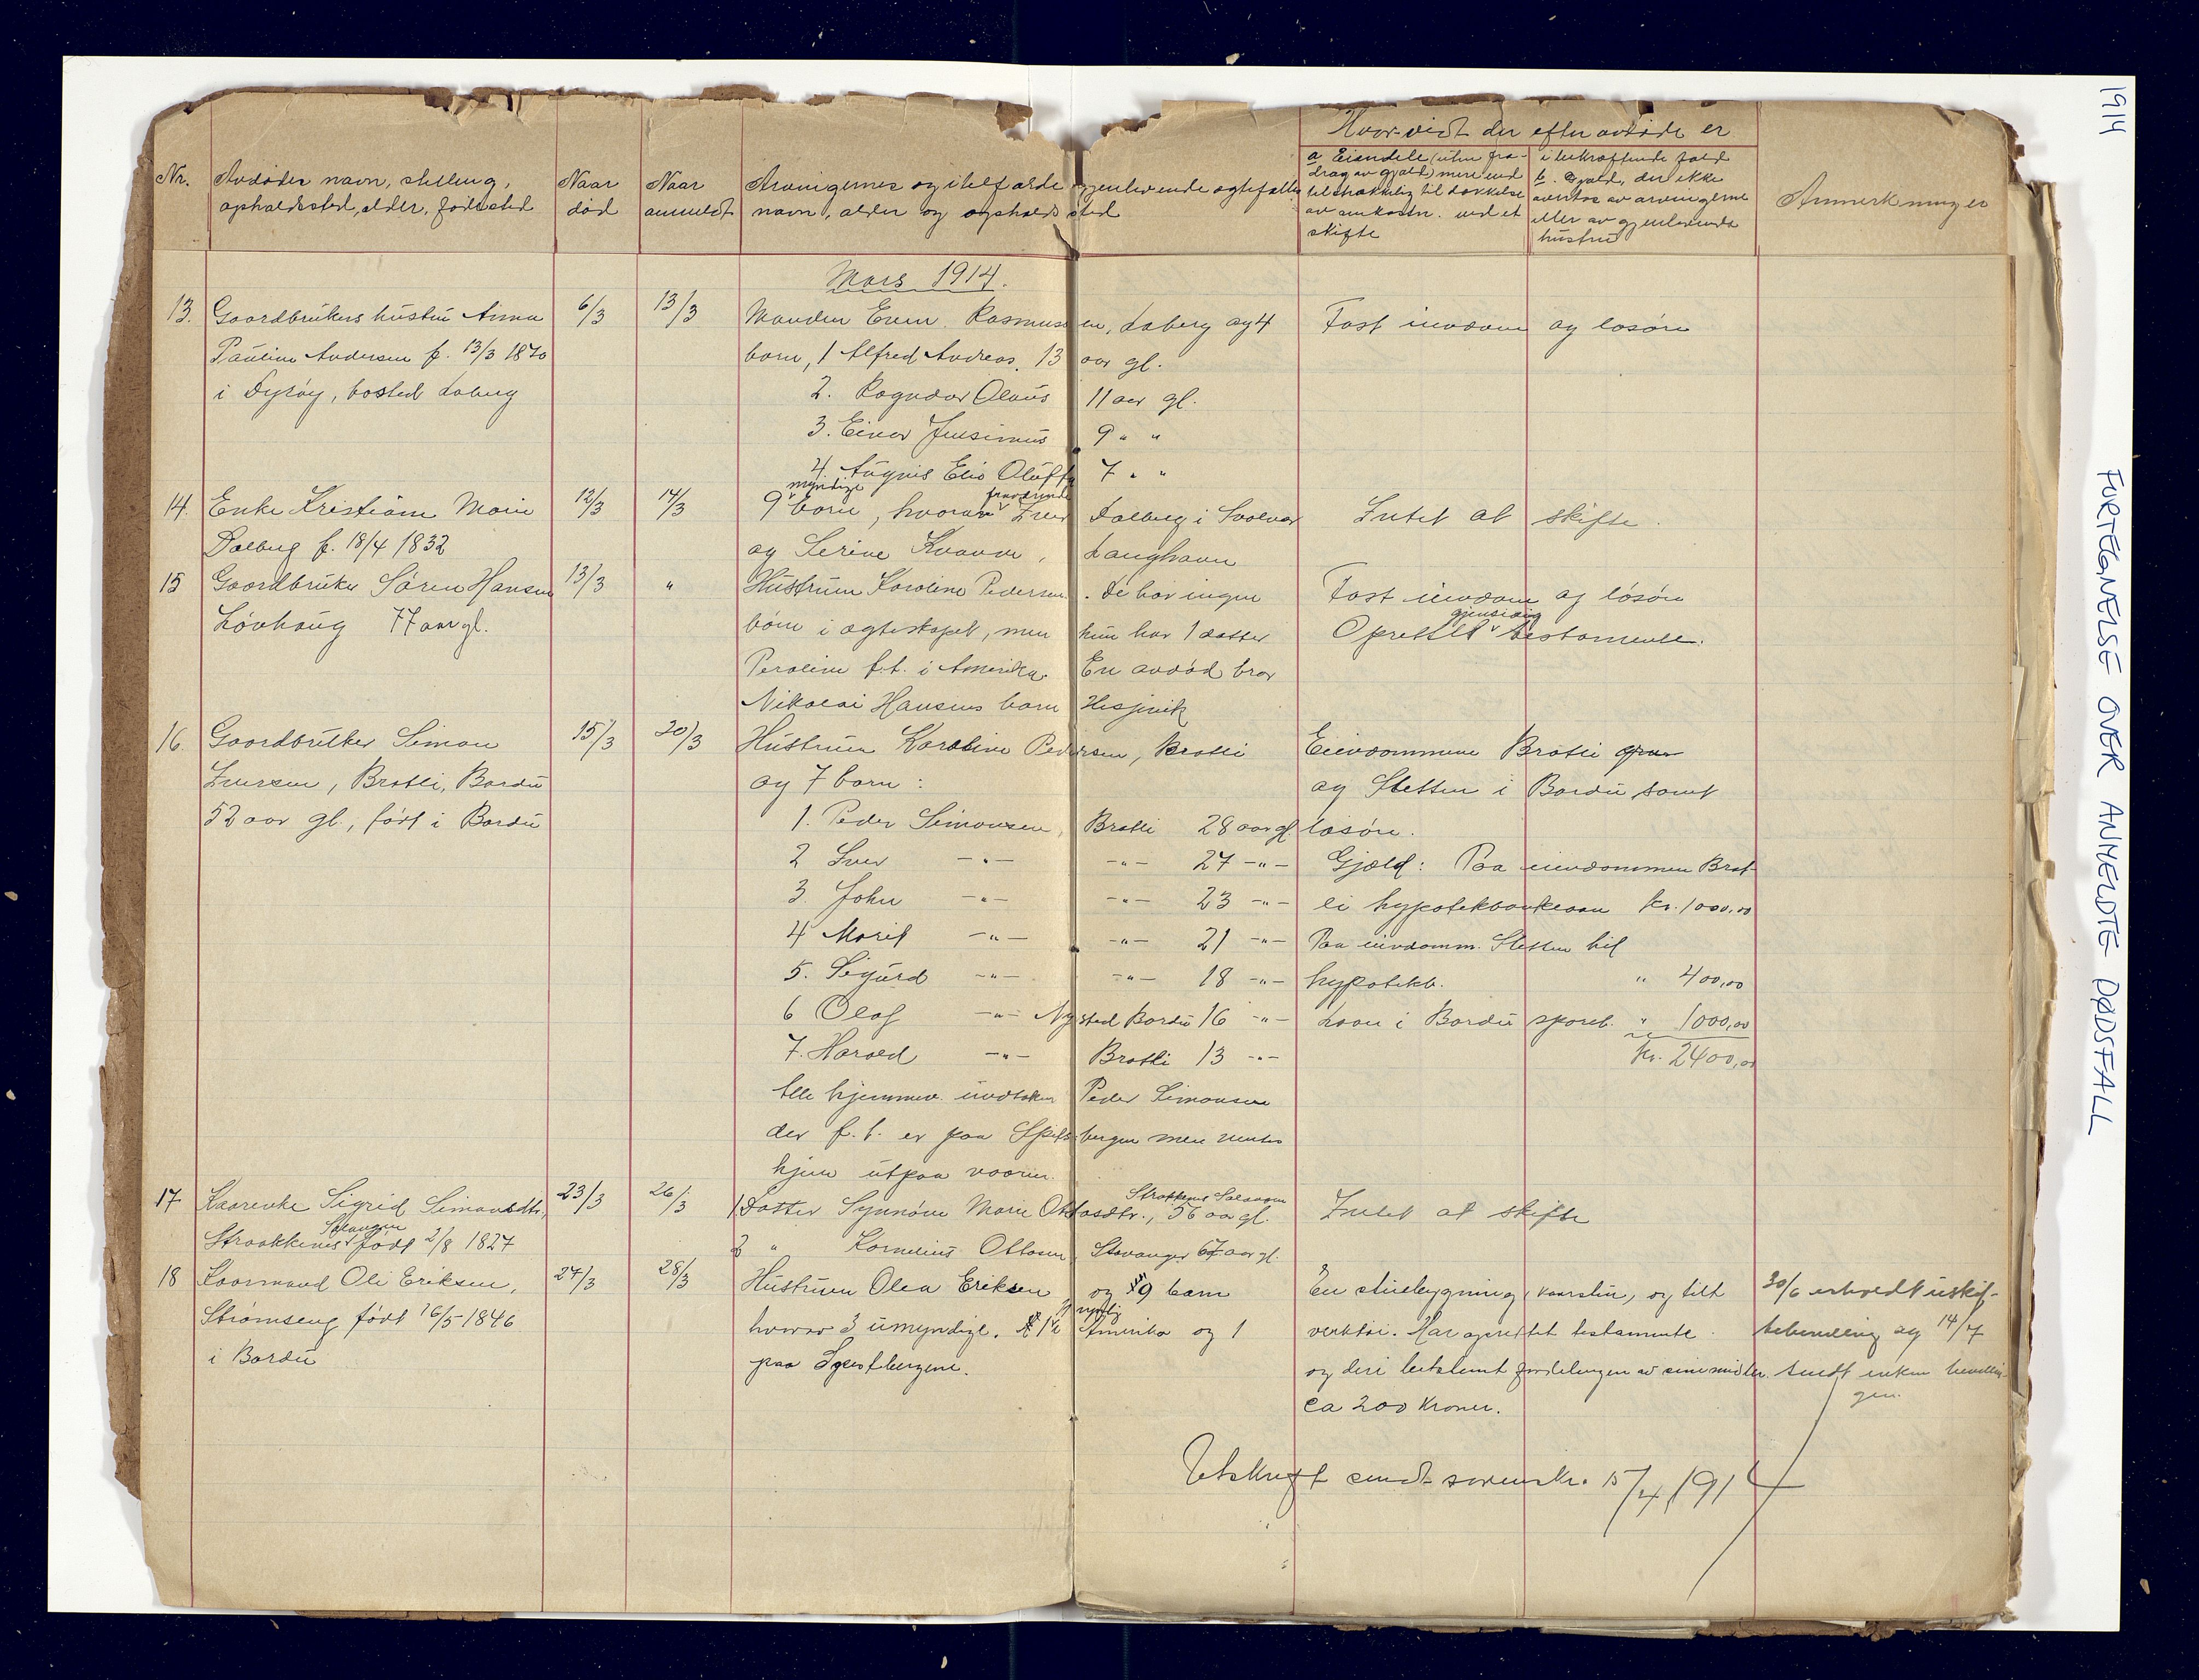 1914
FORTEGNELSE OVER ANMELDTE DØDSFALL
Nr.
Avdødes navn, stilling,
opholdssted, alder, fødested
Naar
død
Naar
anmeldt
Arvingernes og i tilfælde gjenlevende ægtefælles
navn, alder og opholdssted
Hvorvidt der efter avdøde er
a Eiendele (uten fra-
drag av gjæld) mere end
tilstrækkelig til dækkelse
av omkostn. ved et
skifte
i bekræftende fald
b. Gjæld, der ikke
overtas av arvingerne
eller av gjenlevende
hustru
Anmerkninger
Mars 1914.
13. Gaardbrukers hustru Anna
Pauline Andersen f. 13/3 1870
i Dyrøy, bosted Laberg
6/3
13/3
Manden Even Rasmussen, Laberg og 4
barn, 1 Alfred Andreas, 13 aar gl.
2. Ragnvar Olaus 11 aar gl.
3. Einar Jensinius 9 " "
4. Augnis Elis Oluffa 7 " "
Fast eiendom og løsøre
14. Enke Kristiane Marie
Dalberg f. 18/4 1832
12/3
14/3
9 myndige barn, hvorav fraværende Iver Dalberg i Svolvær
og Serine Kvavve, Langhavn
Intet at skifte.
15 Gaardbruker Søren Hansen
Løvhaug 77 aar gl.
13/3
"
Hustruen Karoline Pedersen. De har ingen
barn i ægteskapet, men hun har 1 datter
Peroline f.t. i Amerika. En avdød bror
Nikolai Hansens barn Hesjevik
Fast eiendom og løsøre
Oprettet gjensidig testamente.
16. Gaardbruker Simon
Iversen, Bratli, Bardu
52 aar gl., født i Bardu
15/3
20/3
Hustruen Karoline Pedersen, Bratli
og 7 barn:
1. Peder Simonsen, Bratli 28 aar gl.
2 Iver -"- -"- 27 -"-
3. John -"- -"- 23 -"-
4 Marit -"- -"- 21 -"-
5. Sigurd -"- -"- 18 -"-
6 Olaf -"- Nysted Bardu 16 -"-
7. Harald -"- Bratli 13 -"-
Alle hjemmev. undtaken Peder Simonsen
der f.t. er paa Spitsbergen men ventes
hjem utpaa vaaren.
Eiendommene Bratli
og Sletten i Bardu samt
løsøre.
Gjæld: Paa eiendommen Brat-
li hypotekbanklaan kr. 1000,00
Paa eiendomm. Sletten til
hypotekb. " 400,00
Laan i Bardu spareb. " 1000,00
Kr. 2400,00
17 Kaarenke Sigrid Simonsdtr,
Straakkenes Salangen født 2/8 1827
23/3
26/3
1 Datter Synnøve Marie Ottosdtr., Strokkenes Salangen 56 aar gl.
2 " Kornelius Ottosen Stavanger 67 aar gl.
Intet at skifte
18 Kaarmand Ole Eriksen,
Strømseng født 16/5 1846
i Bardu
27/3
28/3
Hustruen Olea Eriksen og 9 barn
hvorav 3 umyndige. 1 i Amerika og 1
paa Spitsbergen.
En stuebygning, kaarstue, og litt
verktøi. Har oprettet testamente
og deri bestemt fordelingen av sine midler
ca 200 Kroner.
30/6 erholdt uskif-
tebevilling og 14/7
sendt enken bevillin-
gen.
Utskrift sendt sorenskr. 15/4 1914